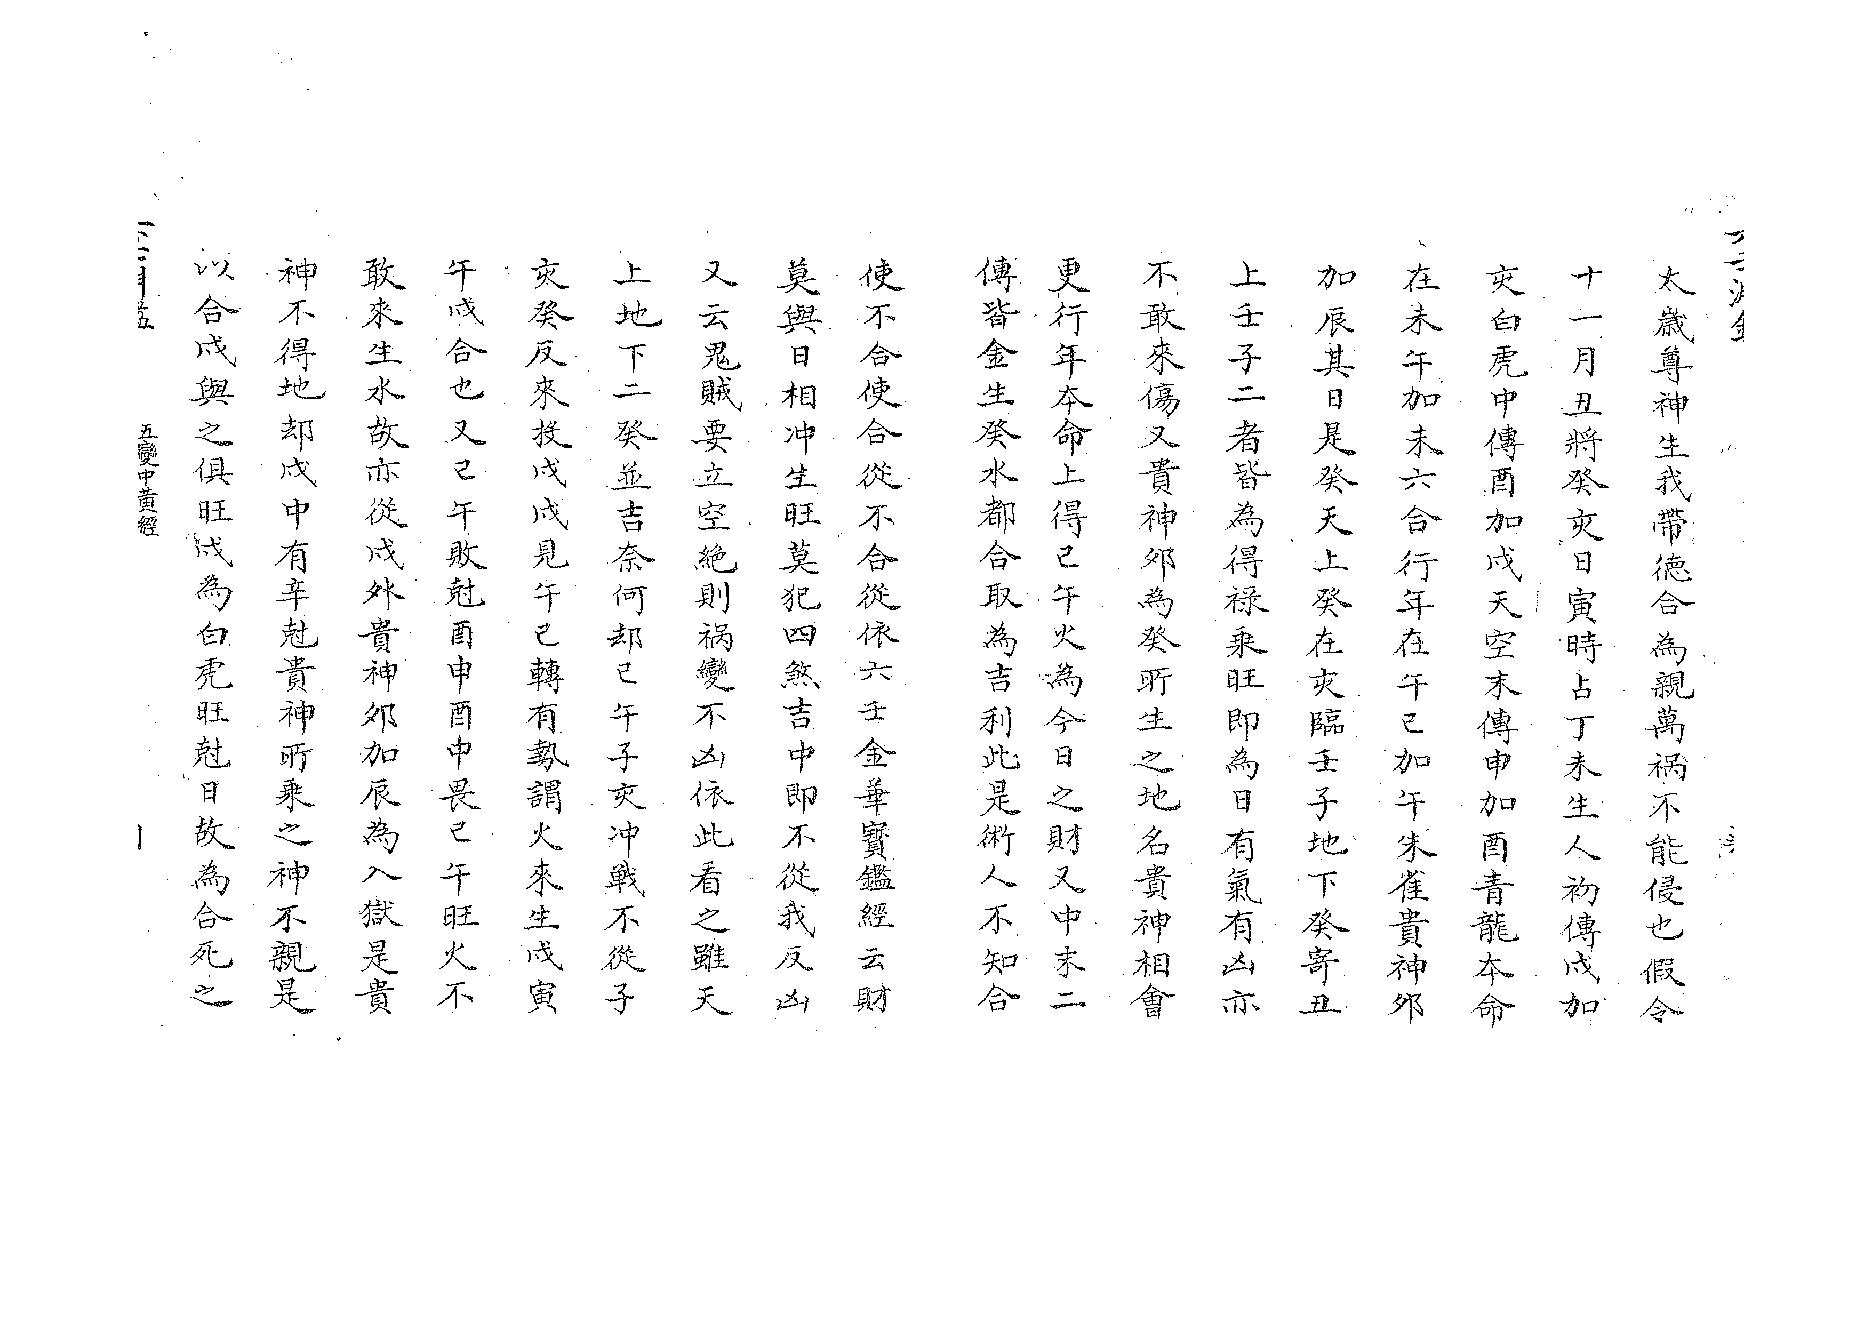 太歲尊神生我帶德合為親萬禍不能侵也假令
十一月丑將癸亥日寅時占丁未生人初傳戌加
亥白虎中傳酉加戌天空末傳申加酉青龍本命
在未午加未六合行年在午巳加午朱雀貴神卯
加辰其日是癸天上癸在亥臨壬子地下癸寄丑
上壬子二者皆為得祿乘旺即為日有氣有凶亦
不敢來傷又貴神卯為癸所生之地名貴神相會
更行年本命上得巳午火為今日之財又中末二
傳皆金生癸水都合取為吉利此是術人不知合
使不合使合從不合從依六壬金華寶鑑經云財
莫與日相冲生旺莫犯四煞吉中即不從我反凶
又云鬼賊要立空絕則禍變不凶依此看之雖天
上地下二癸並吉奈何却巳午子亥冲戰不從子
亥癸反來投戌戌見午巳轉有勢謂火來生戌寅
午戌合也又巳午敗尅酉申酉申畏巳午旺火不
敢來生水故亦從戌外貴神卯加辰為入獄是貴
神不得地却戌中有辛尅貴神所乘之神不親是
以合戌與之俱旺戌為白虎旺尅日故為合死之
五變中黃經